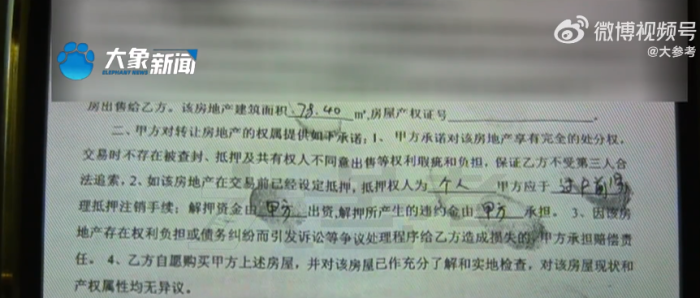 大象新闻
ELEPHANT NEWS
微博视频号
@大参考
房出售给乙方。该房地产建筑面积 78.40 m²,房屋产权证号
二、甲方对转让房地产的权属提供如下承诺:1、甲方承诺对该房地产享有完全的处分权,
交易时不存在被查封、抵押及共有权人不同意出售等权利瑕疵和负担,保证乙方不受第三人合
法追索,2、如该房地产在交易前已经设定抵押,抵押权人为 个人 甲方应于 过户前
理抵押注销手续;解押资金由 甲方 出资,解押所产生的违约金由 甲方 承担。 3、因该房
地产存在权利负担或债务纠纷而引发诉讼等争议处理程序给乙方造成损失的,甲方承担赔偿责
任。 4、乙方自愿购买甲方上述房屋,并对该房屋已作充分了解和实地检查,对该房屋现状和
产权属性均无异议。